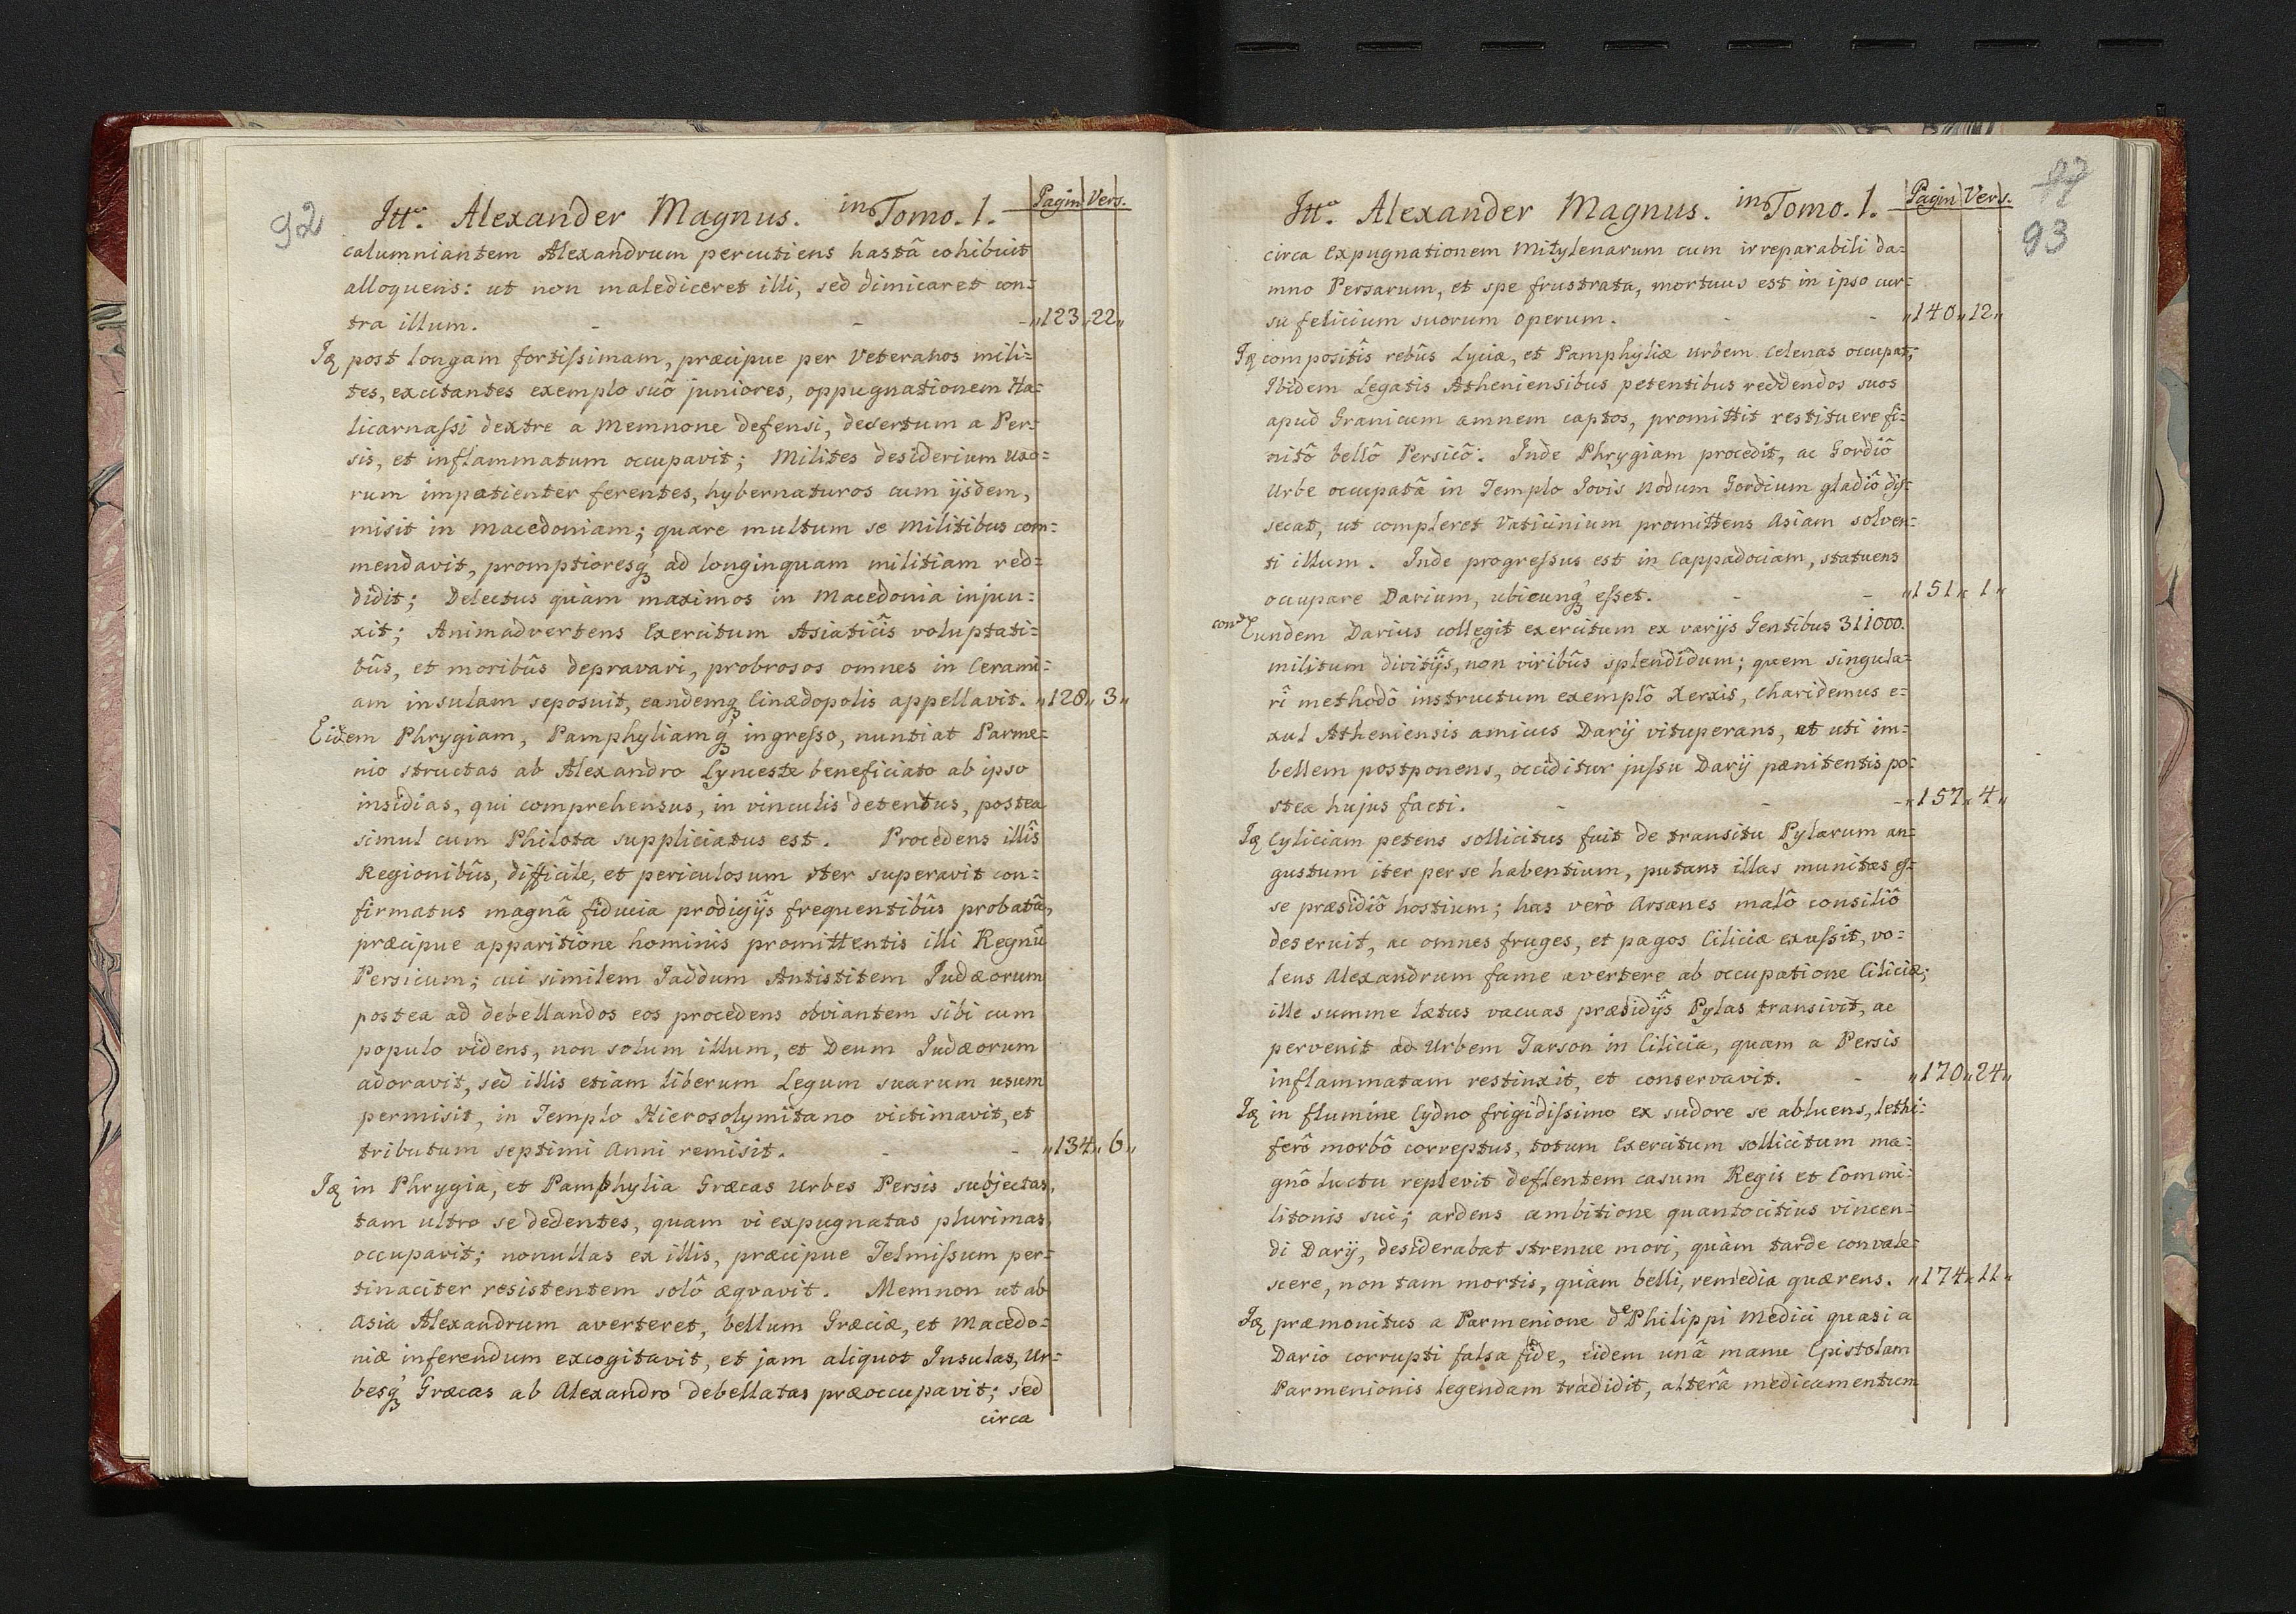 92
Itt.ᵒ Alexander Magnus. in Tomo. 1. Pagin Vers.
calumniantem Alexandrum percutiens hastâ cohibuit
alloquens: ut non malediceret illi, sed dimicaret con=
tra illum. - - - „123„22„
Iq post longam fortissimam, præcipue per Veteranos mili=
tes, excitantes exemplo suô juniores, oppugnationem Ha=
licarnassi dextre a Memnone defensi, desertum a Per=
sis, et inflammatum occupavit; Milites desiderium uxo=
rum impatienter ferentes, hybernaturos cum ijsdem,
misit in Macedoniam; quare multum se Militibus com=
mendavit, promptioresq́ ad longinquam militiam red=
didit; Delectus quàm maximos in Macedonia injun=
xit; Animadvertens Exercitum Asiaticîs voluptati=
bûs, et moribûs depravari, probrosos omnes in Cerami=
am insulam seposuit, eandemq́ Cinædopolis appellavit. „128„3„
Eidem Phrygiam, Pamphyliamq́ ingresso, nuntiat Parme=
nio structas ab Alexandro Lynceste beneficiato ab ipso
insidias, qui comprehensus, in vinculis detentus, postea
simul cum Philota suppliciatus est. Procedens illîs
Regionibûs, difficile, et periculosum iter superavit con=
firmatus magnâ fiducia prodigijs frequentibûs probatâ,
præcipue apparitione hominis promittentis illi Regnũ
Persicum; cui similem Jaddum Antistitem Judæorum
postea ad debellandos eos procedens obviantem sibi cum
populo videns, non solum illum, et Deum Judæorum
adoravit, sed illis etiam liberum Legum suarum usum
permisit, in Templo Hierosolymitano victimavit, et
tributum septimi Anni remisit. - - „134„6„
Iq in Phrygia, et Pamphylia Græcas Urbes Persis subjectas,
tam ultro se dedentes, quam vi expugnatas plurimas,
occupavit; nonullas ex illis, præcipue Telmissum per=
tinaciter resistentem solô æqvavit. Memnon ut ab
Asia Alexandrum averteret, bellum Græciæ, et Macedo=
niæ inferendum excogitavit, et jam aliquot Insulas, Ur=
besq́ Græcas ab Alexandro debellatas præoccupavit; sed
circa
93
Itt.ᵒ Alexander Magnus. in Tomo. 1. Pagin Vers.
circa Expugnationem Mitylenarum cum irreparabili da=
mno Persarum, et spe frustrata, mortuus est in ipso cur=
su felicium suorum operum. - - „140„12„
Iq compositîs rebûs Lyciæ, et Pamphyliæ urbem Celenas occupat;
Ibidem Legatis Atheniensibus petentibus reddendos suos
apud Granicum amnem captos, promittit restituere fi=
nitô bellô Persicô. Inde Phrygiam procedit, ac Gordiô
Urbe occupatâ in Templo Jovis Nodum Gordium gladiô dis=
secat, ut compleret Vaticinium promittens Asiam solven=
ti illum. Inde progressus est in Cappadociam, statuens
occupare Darium, ubicunq́ esset. - - „151„1„
con Eundem Darius collegit exercitum ex varijs Gentibus 311000.
militum divitijs, non viribûs splendidum; quem singula=
rî methodô instructum exemplô Xerxis, Charidemus e=
xul Atheniensis amicus Darij vituperans, et uti im=
bellem postponens, occiditur jussu Darij pænitentis po=
stea hujus facti. - - - „157„4„
Iq Cyliciam petens sollicitus fuit de transitu Pylarum an=
gustum iter per se habentium, putans illas munitas es=
se præsidiô hostium; has verô Arsanes malô consiliô
deseruit, ac omnes fruges, et pagos Ciliciæ exussit, vo=
lens Alexandrum fame avertere ab occupatione Ciliciæ;
ille summe lætus vacuas præsidijs Pylas transivit, ac
pervenit ad Urbem Tarson in Cilicia, quam a Persis
inflammatam restinxit, et conservavit. - „170„24„
Iq in flumine Cydno frigidissimo ex sudore se abluens, lethi=
ferô morbô correptus, totum Exercitum sollicitum ma=
gnô luctu replevit deflentem casum Regis et Commi=
litonis sui; ardens ambitione quantocitius vincen=
di Darij, desiderabat strenue mori, quàm tarde convale=
scere, non tam mortis, quàm belli, remedia quærens. „174„11„
Iq præmonitus a Parmenione de Philippi Medici quasi a
Dario corrupti falsa fide, eidem unâ manu Epistolam
Parmenionis legendam tradidit, alterâ medicamentum